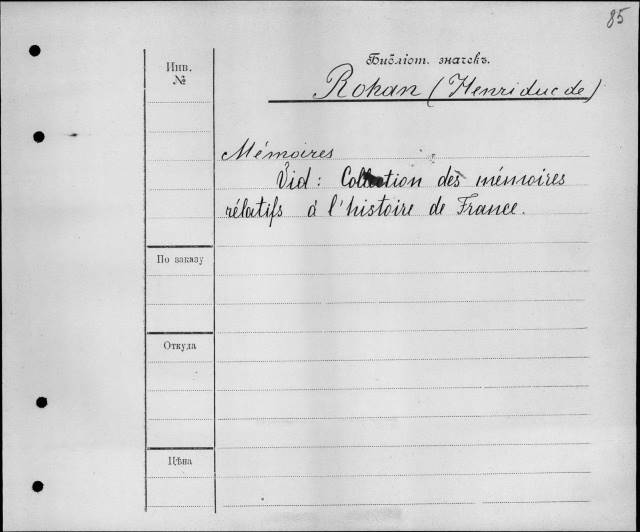 85
Библіот. значекъ.
Инв. №
Rohan (Henri duc de)
Mémoires
Vid: Collection des mémoires
rélatifs à l'histoire de France.
По заказу
Откуда
Цѣна